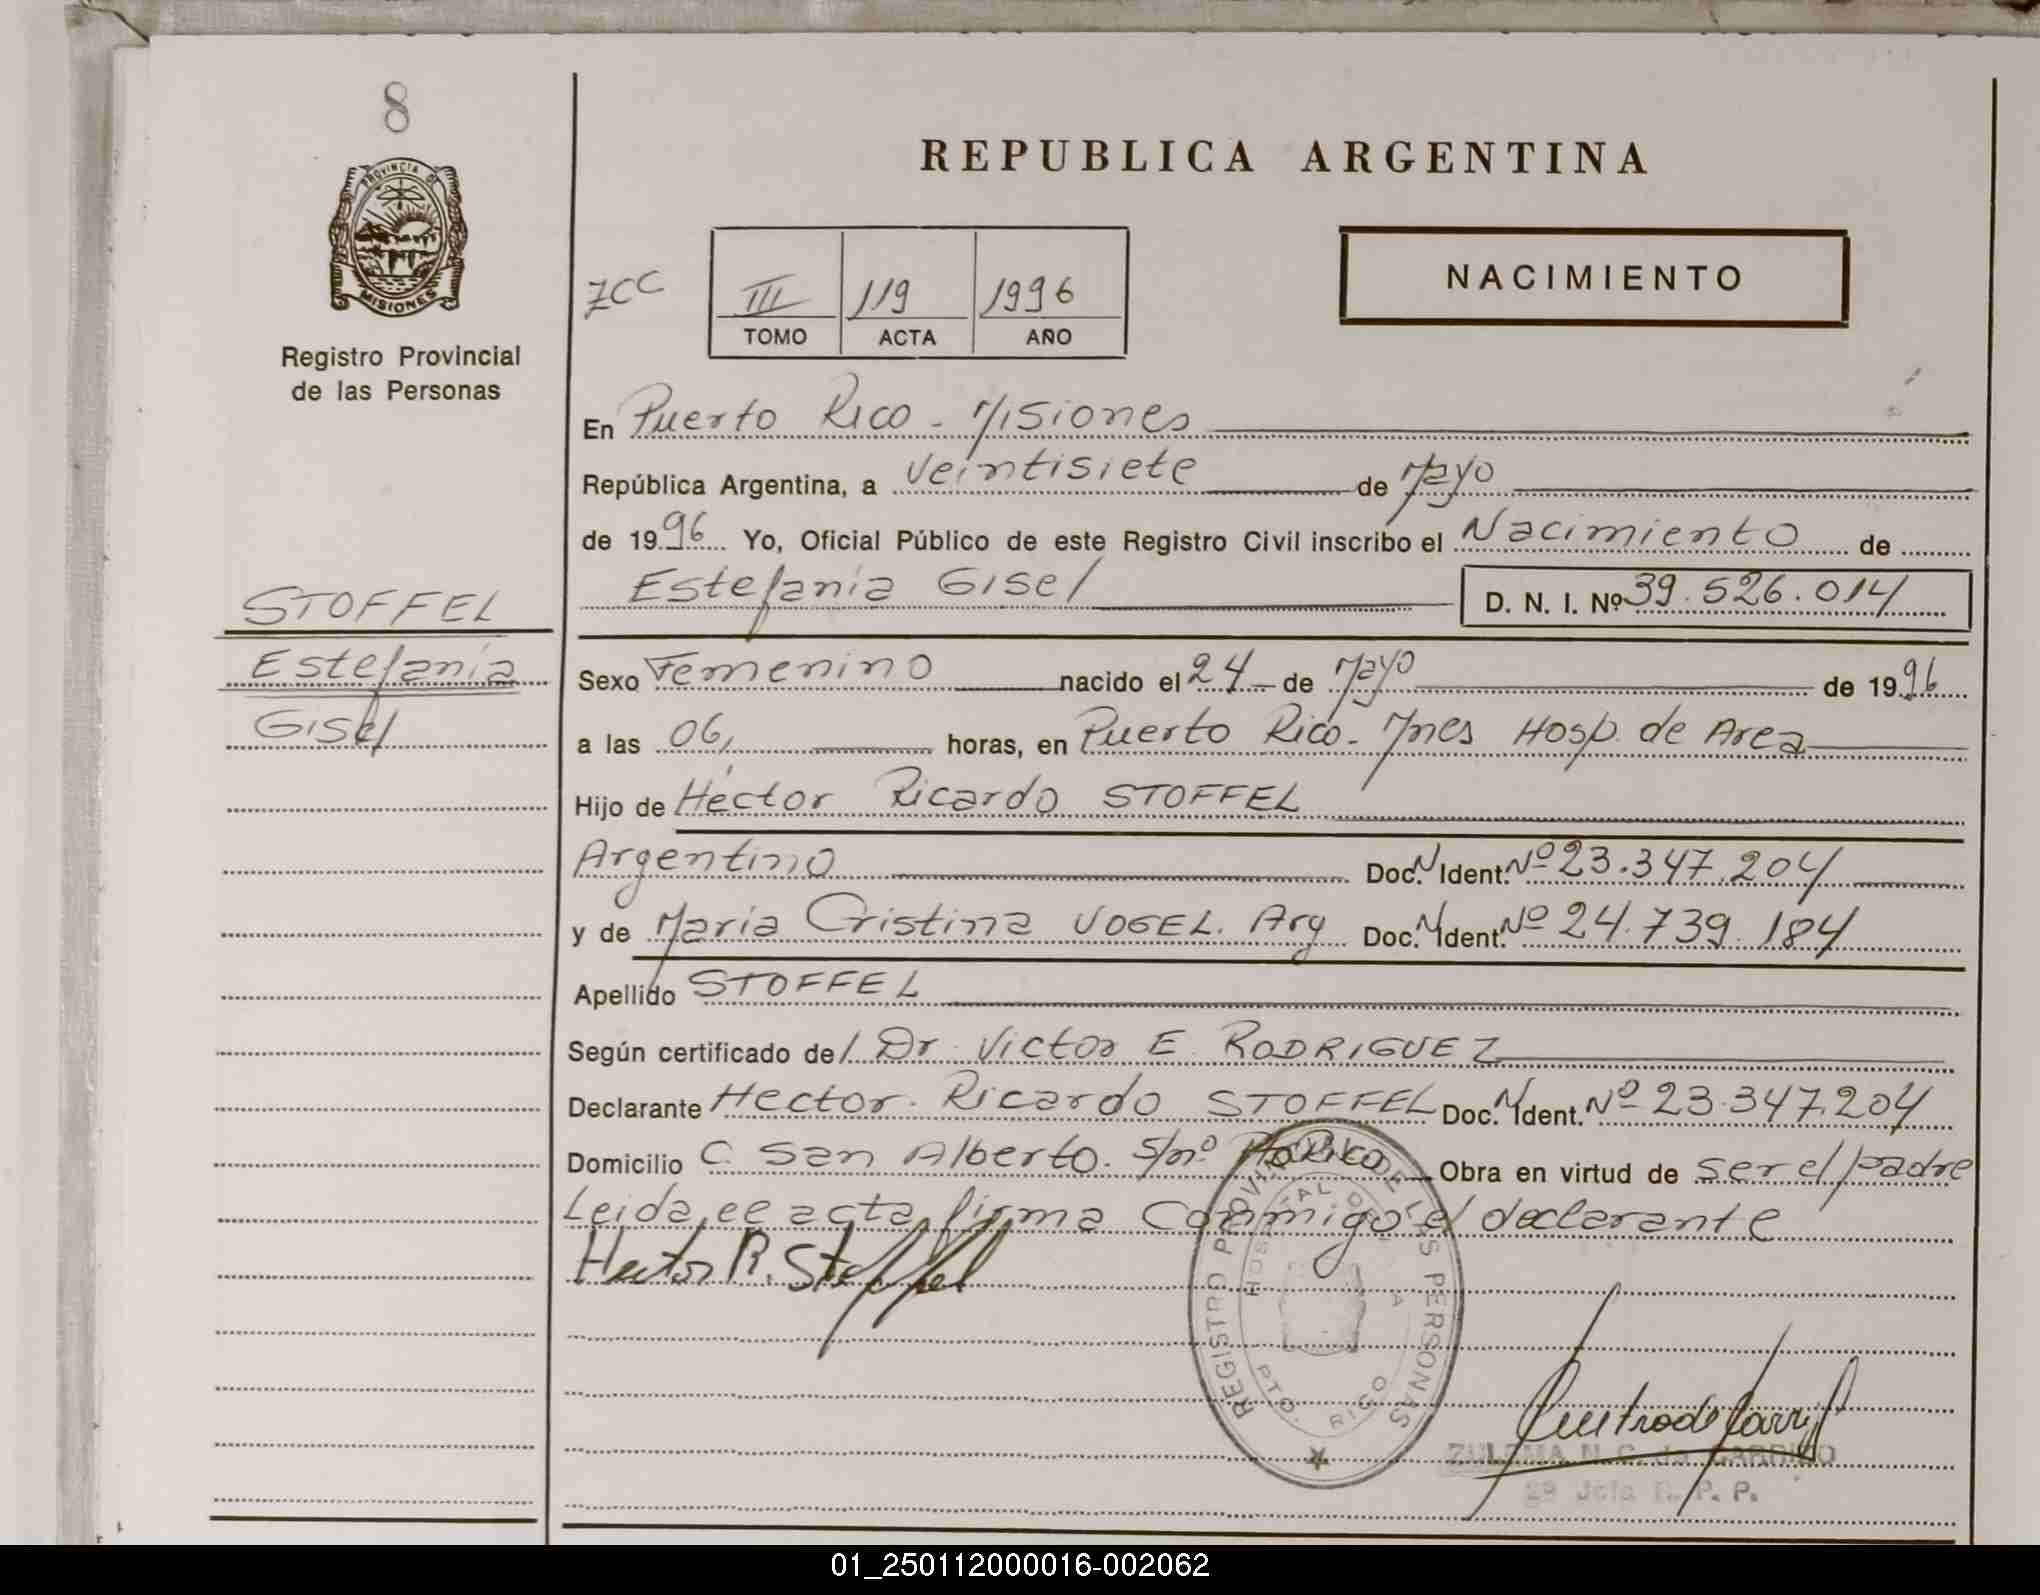 8
PROVINCIA DE
MISIONES
Registro Provincial
de las Personas
STOFFEL
Estefanía
Gisel
REPUBLICA ARGENTINA
NACIMIENTO
III 119 1996
TOMO ACTA AÑO
En Puerto Rico - Misiones
República Argentina, a veintisiete de Mayo
de 1996 Yo, Oficial Público de este Registro Civil inscribo el Nacimiento de
Estefanía Gisel D. N. I. Nº 39.526.014
Sexo Femenino nacido el 24 de Mayo de 1996
a las 06, horas, en Puerto Rico - Mnes Hosp. de Area
Hijo de Héctor Ricardo STOFFEL
Argentino Doc. N Ident. Nº 23.347.204
y de María Cristina VOGEL. Arg Doc. N Ident. Nº 24.739.184
Apellido STOFFEL
Según certificado del Dr. Victor E. RODRIGUEZ
Declarante Hector Ricardo STOFFEL Doc. N Ident. Nº 23.347.204
Domicilio C. San Alberto. S/nº Pto Rico Obra en virtud de ser el padre
Leida el acta firma Conmigo el declarante
Hector R. Stoffel
REGISTRO PROVINCIAL DE LAS PERSONAS
HOSPITAL DE A
PTO. RICO
ZULEMA N. C. de GARRIDO
2º Jefa R. P. P.
01_250112000016-002062